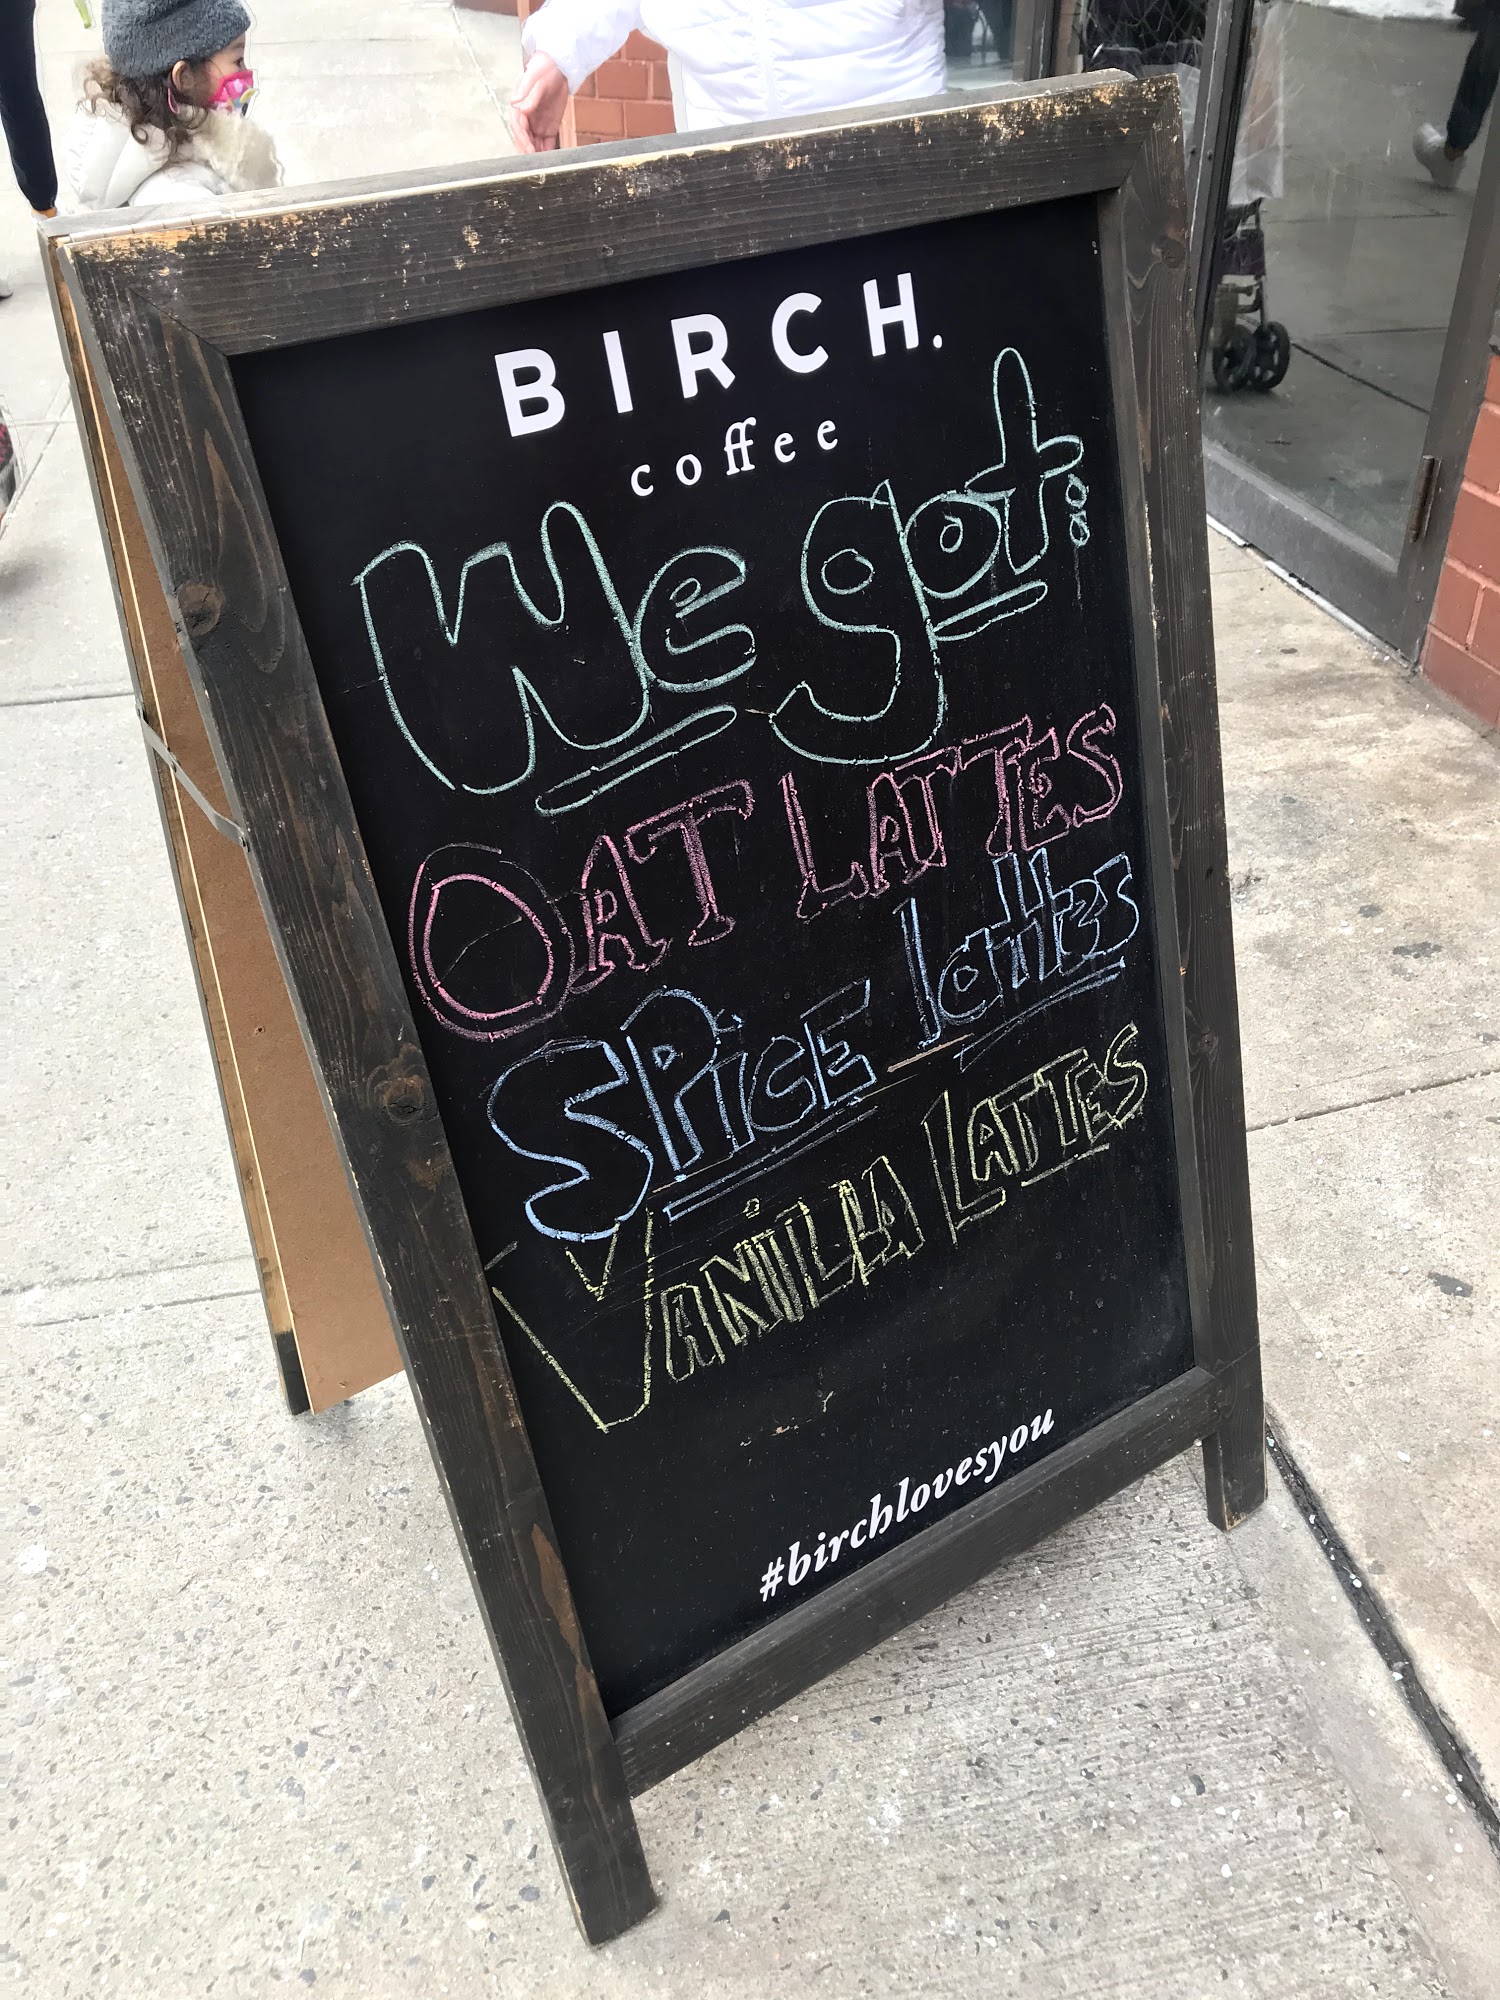 BIRCH.
coffee
We got:
OAT LATTES
SPiCE lattes
VANiLLA LATTES
#birchlovesyou